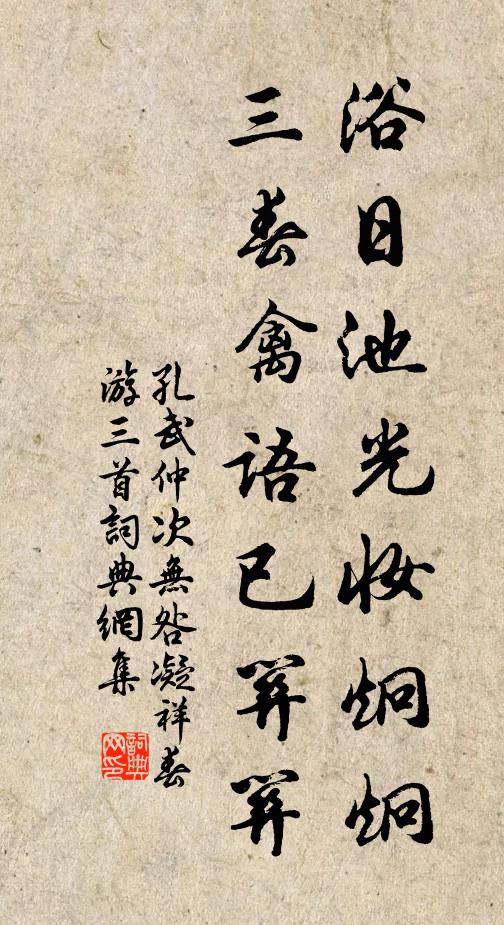 浴日池光妆炯炯
三春禽語已關關
孔武仲次無咎凝祥春
游三首詞典網集
詞典
网印